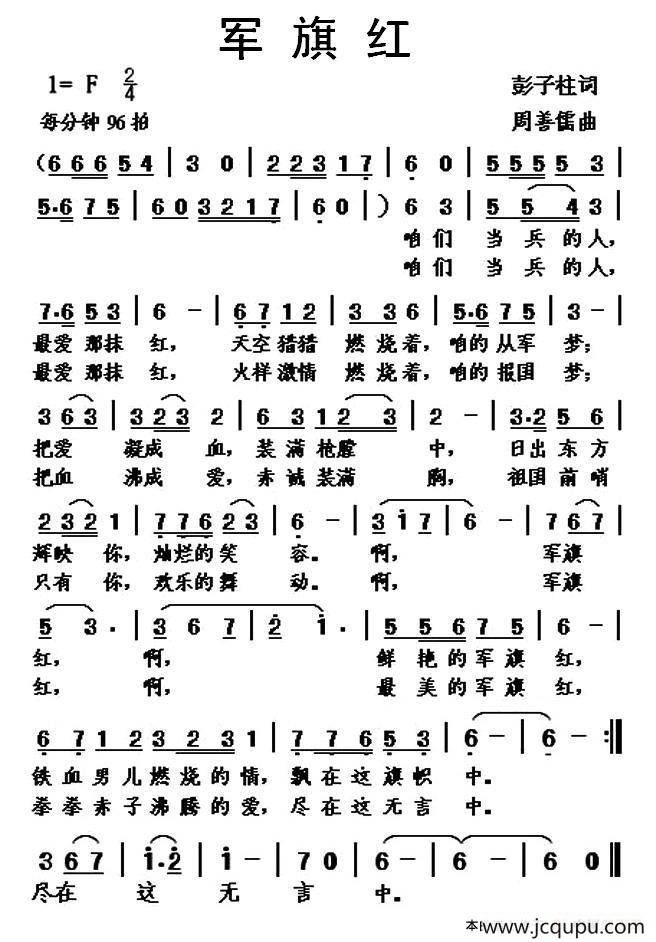 军旗红
1= F 2/4 彭子柱词
每分钟 96 拍 周善儒曲
(6 6 6 5 4 | 3 0 | 2 2 3 1 7 | 6 0 | 5 5 5 5 3 |
5·6 7 5 | 6 0 3 2 1 7 | 6 0 | ) 6 3 | 5 5 4 3 |
咱们 当兵的人,
咱们 当兵的人,
7·6 5 3 | 6 - | 6 7 1 2 | 3 3 6 | 5·6 7 5 | 3 - |
最爱那抹 红, 天空猎猎 燃烧着, 咱的从军 梦;
最爱那抹 红, 火样激情 燃烧着, 咱的报国 梦;
3 6 3 | 3 2 3 2 | 6 3 1 2 3 | 2 - | 3·2 5 6 |
把爱 凝成 血, 装满枪膛 中, 日出东方
把血 沸成 爱, 赤诚装满 胸, 祖国前哨
2 3 2 1 | 7 7 6 2 3 | 6 - | 3 i 7 | 6 - | 7 6 7 |
辉映 你, 灿烂的笑 容。 啊, 军旗
只有 你, 欢乐的舞 动。 啊, 军旗
5 3 · | 3 6 7 | 2 i · | 5 5 6 7 5 | 6 - |
红, 啊, 鲜艳的军旗红,
红, 啊, 最美的军旗红,
6 7 1 2 3 2 3 1 | 7 7 6 5 3 | 6 - | 6 - :||
铁血男儿燃烧的情, 飘在这旗帜 中。
拳拳赤子沸腾的爱, 尽在这无言 中。
3 6 7 | i·2 | i - | 7 0 | 6 - | 6 - | 6 0 ||
尽在 这 无 言 中。
www.jcqupu.com